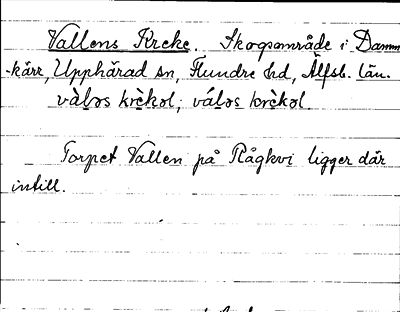 Vallens Kreke. Skogsområde i Damm
-kärr, Upphärad sn, Flundre hd, Älfsb. län.
Torpet Vallen på Rågkvi ligger där
intill.